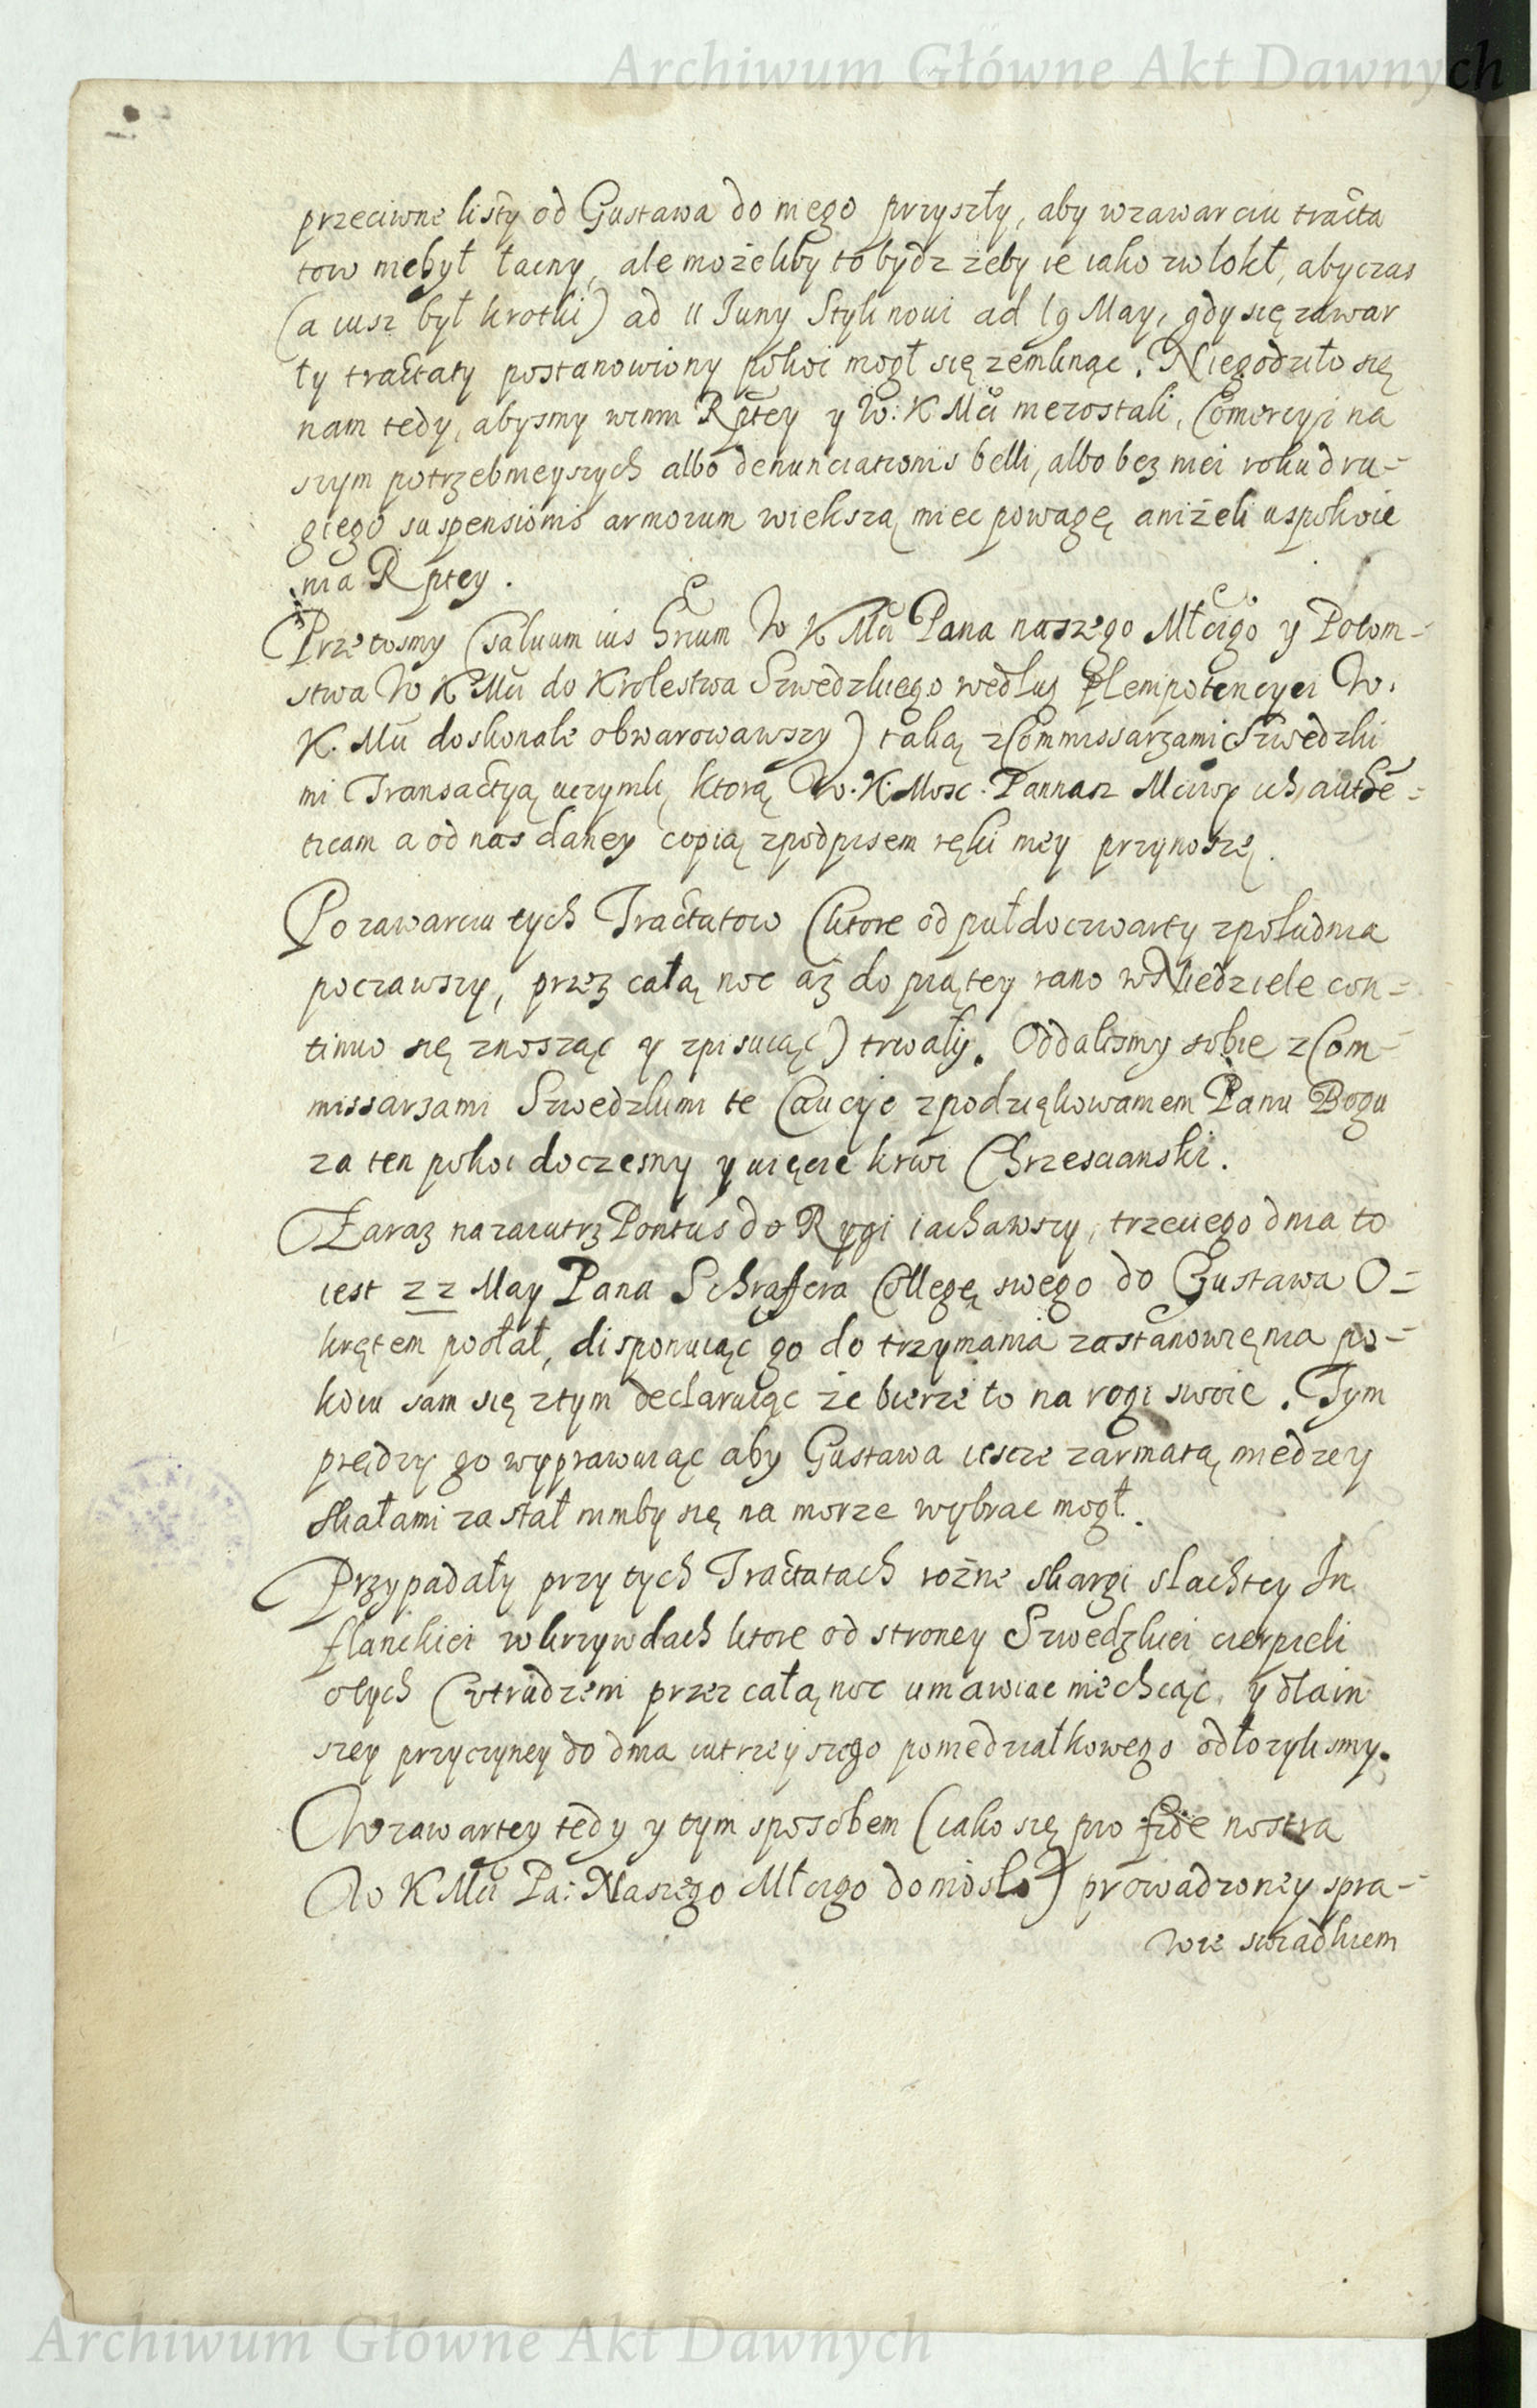 Archiwum Główne Akt Dawnych
przeciwne listy od Gustawa do niego przyszły, aby wzawarciu tracta
tow niebył łacny, ale możeliby to bydz żeby ie iako zwłokł, abyczas
(a iusz był krotki) ad 11 Juny Styli noui ad 19 May, gdy się zawar
ty tractaty postanowiony pokoi mogł się zemknąc. Niegodziło się
nam tedy, abysmy winni Rptey y W: K Mći niezostali, Comercyi na
szym potrzebnieyszych albo denunciationis belli, albo bez niei roku dru-
giego suspensionis armorum wieksza miec powagę aniżeli uspokoie
nia Rptey.
Przetosmy (saluum ius hrium W K Mći Pana naszego Młćigo y Potom-
stwa W K Mći do Krolestwa Szwedzkiego według plenipotencyei W.
K. Mći doskonale obwarowawszy) taką z Commissarzami Szwedzki
mi Transactyą uczynili, ktorą W. K. Mosc. Pannasz Mciwy ich authē-
ticam a od nas daney copią zpodpisem ręki mey przynoszę.
Po zawarciu tych Tractatow (ktore od puł do czwarty zpołudnia
poczawszy, przez całą noc aż do piątey rano w Niedziele con-
tinuo się znosząc y zpisuiąc) trwały. Oddalismy sobie z Com-
missarzami Szwedzkimi te Caucye zpodziękowaniem Panu Bogu
za ten pokoi doczesny y uięcie krwi Chrzescianski.
Zaraz nazaiutrz Pontus do Rygi iachawszy, trzeciego dnia to
iest 22 May Pana Schraffera Collegę swego do Gustawa O-
krętem posłał, disponuiąc go do trzymania zastanowięnia po-
koiu sam się ztym declaruiąc że bierze to na rogi swoie. Tym
prędzy go wyprawuiąc aby Gustawa iescze zarmatą miedzey
skałami zastał nimby się na morze wybrac mogł.
Przypadały przy tych Tractatach rożne skargi slachtey In
flanckiei wkrzywdach ktore od stroney Szwedzkiei cierpieli
otych (utrudzeni przez całą noc umawiac niechcąc, y dlain
szey przyczyney do dnia iutrzeyszego poniedziałkowego odłozylismy.
Wzawartey tedy y tym sposobem (iako się pro fide nostra
Do K Mći Pa: Naszego Młćigo doniosło) prowadzoney spra-
wie swiadkiem
Archiwum Główne Akt Dawnych